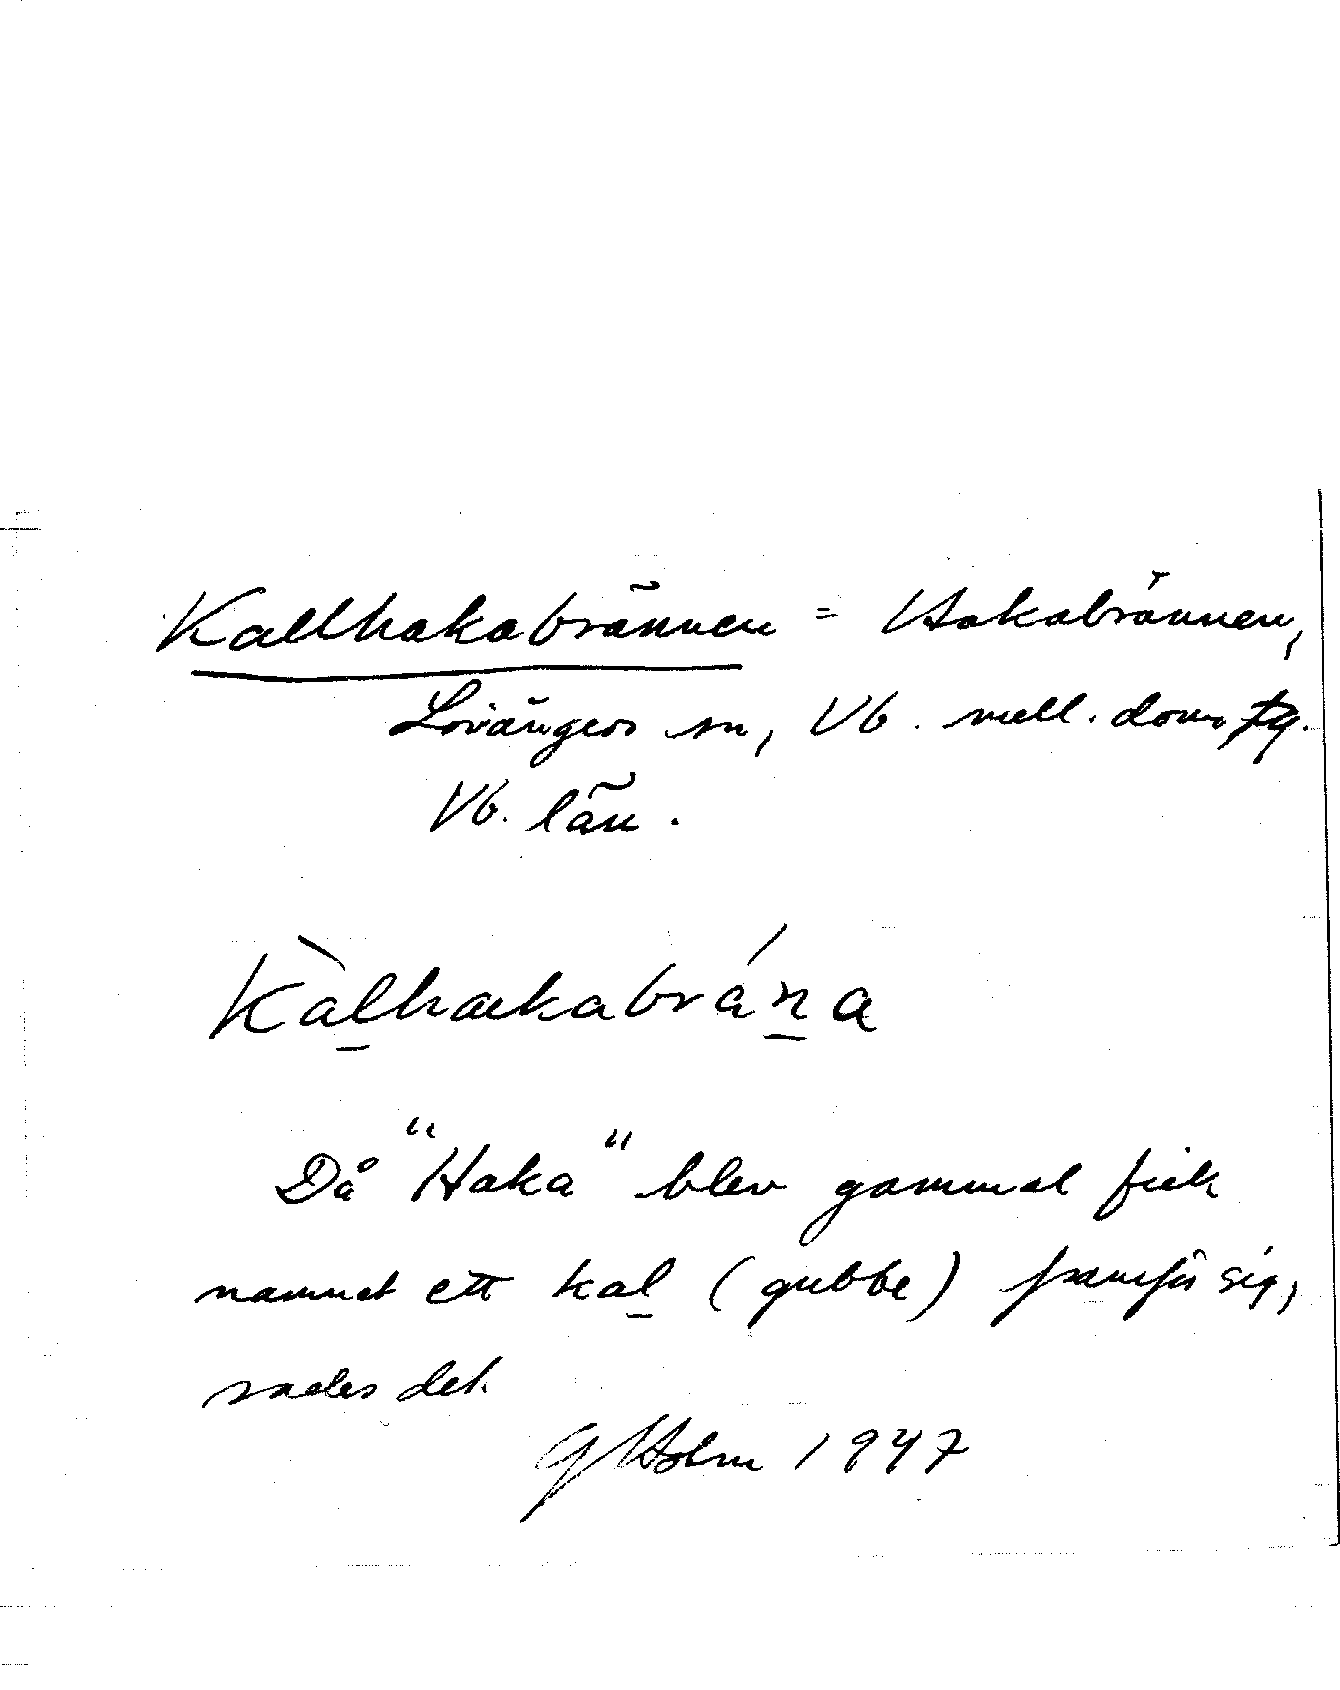 Kallhakabrännen = Hakabrännen,
Lövångers sn, Vb. mell. doms tg.
Vb. län.
Kàlhakabrána
Då "Haka" blev gammal fick
namnet ett kal (gubbe) framför sig,
sades det.
G Holm 1947